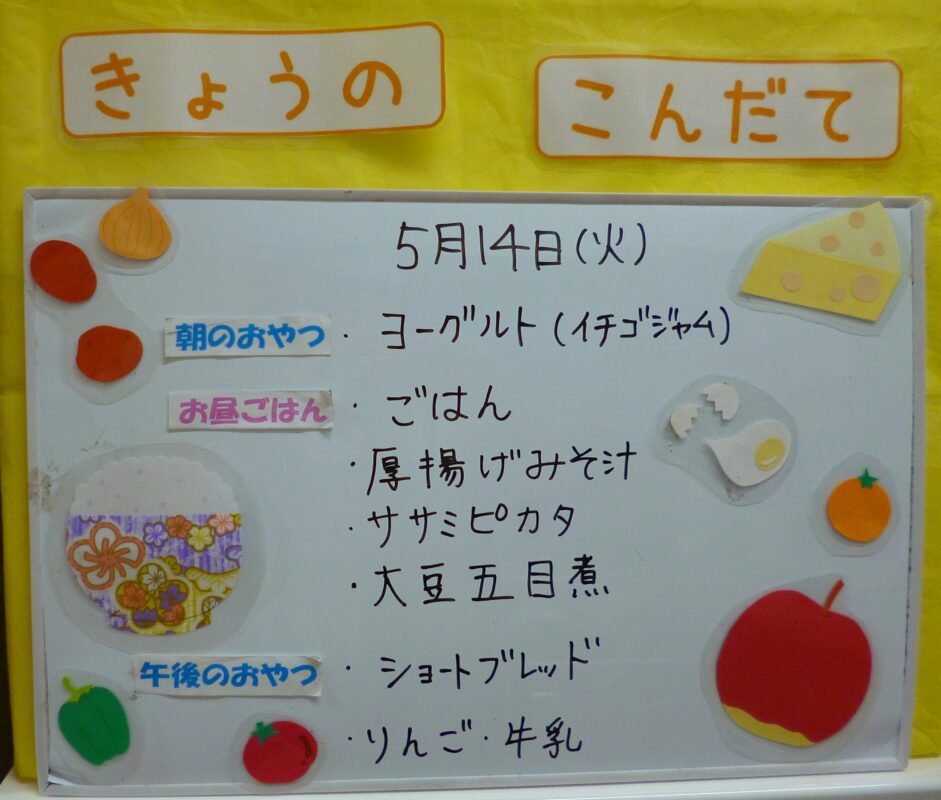 きょうの こんだて
5月14日(火)
朝のおやつ ・ ヨーグルト(イチゴジャム)
お昼ごはん ・ ごはん
・厚揚げみそ汁
・ササミピカタ
・大豆五目煮
午後のおやつ ・ ショートブレッド
・りんご・牛乳